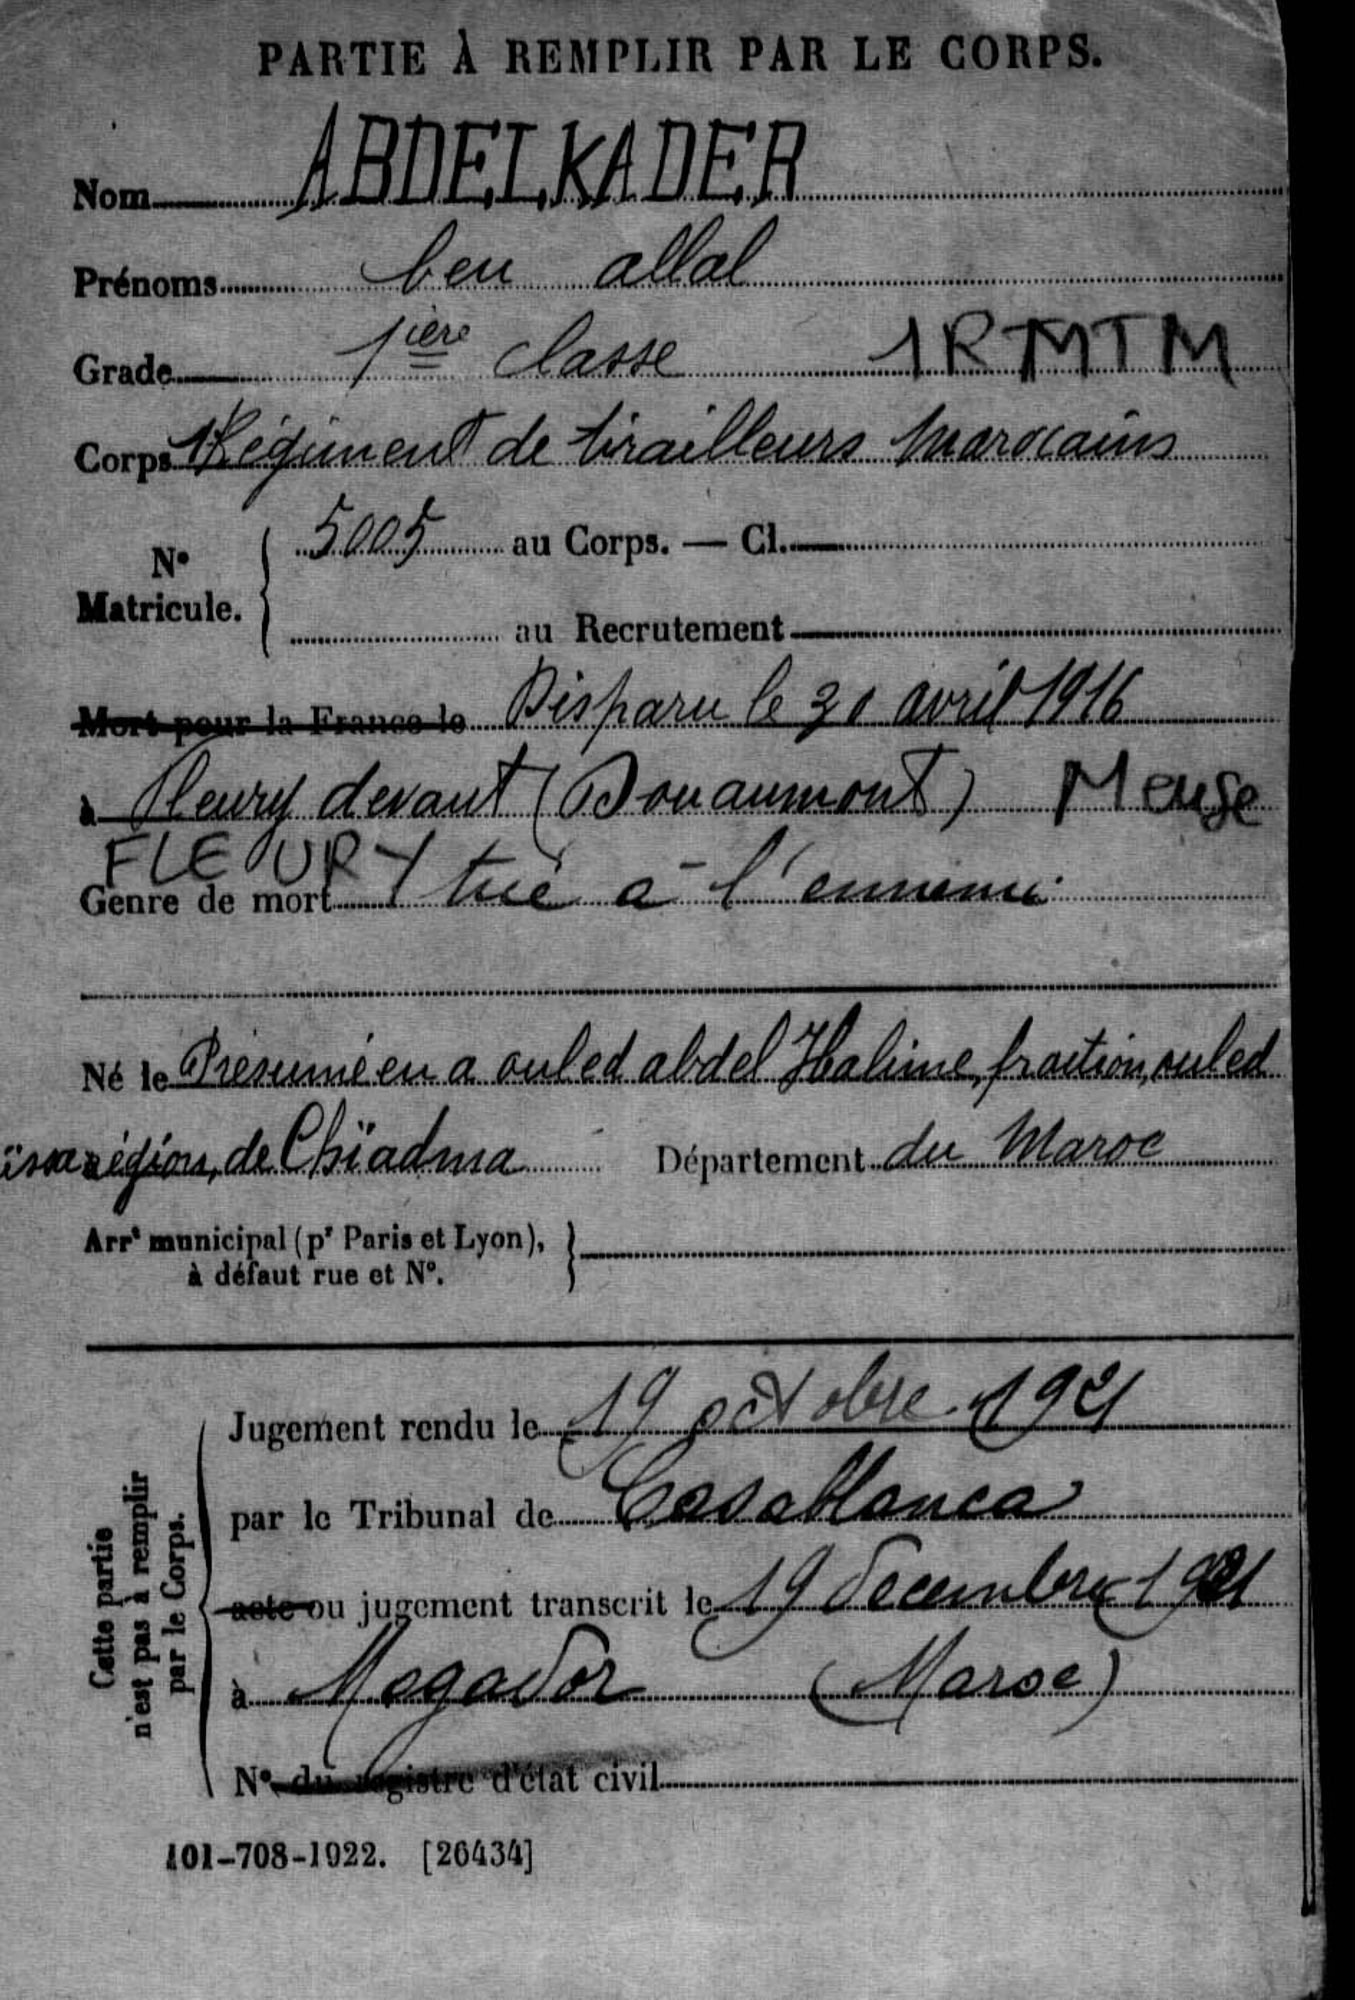 PARTIE À REMPLIR PAR LE CORPS.
Nom ABDELKADER
Prénoms ben allal
Grade 1ière classe 1RMTM
Corps 1 Régiment de tirailleurs Marocains
N° Matricule. 5005 au Corps. — Cl.
au Recrutement
Mort pour la France le Disparu le 30 avril 1916
à Fleury devant (Douaumont) Meuse
FLEURY
Genre de mort tué à l'ennemi
Né le Présumé en a ouled abdel Halime, fraction, ouled
ïssa région, de Chïadma Département du Maroc
Arrt municipal (pr Paris et Lyon),
à défaut rue et N°.
Cette partie
n'est pas à remplir
par le Corps.
Jugement rendu le 19 octobre 1921
par le Tribunal de Casablanca
acte ou jugement transcrit le 19 decembre 1921
à Mogador (Maroc)
N° du registre d'état civil
101-708-1922. [26434]